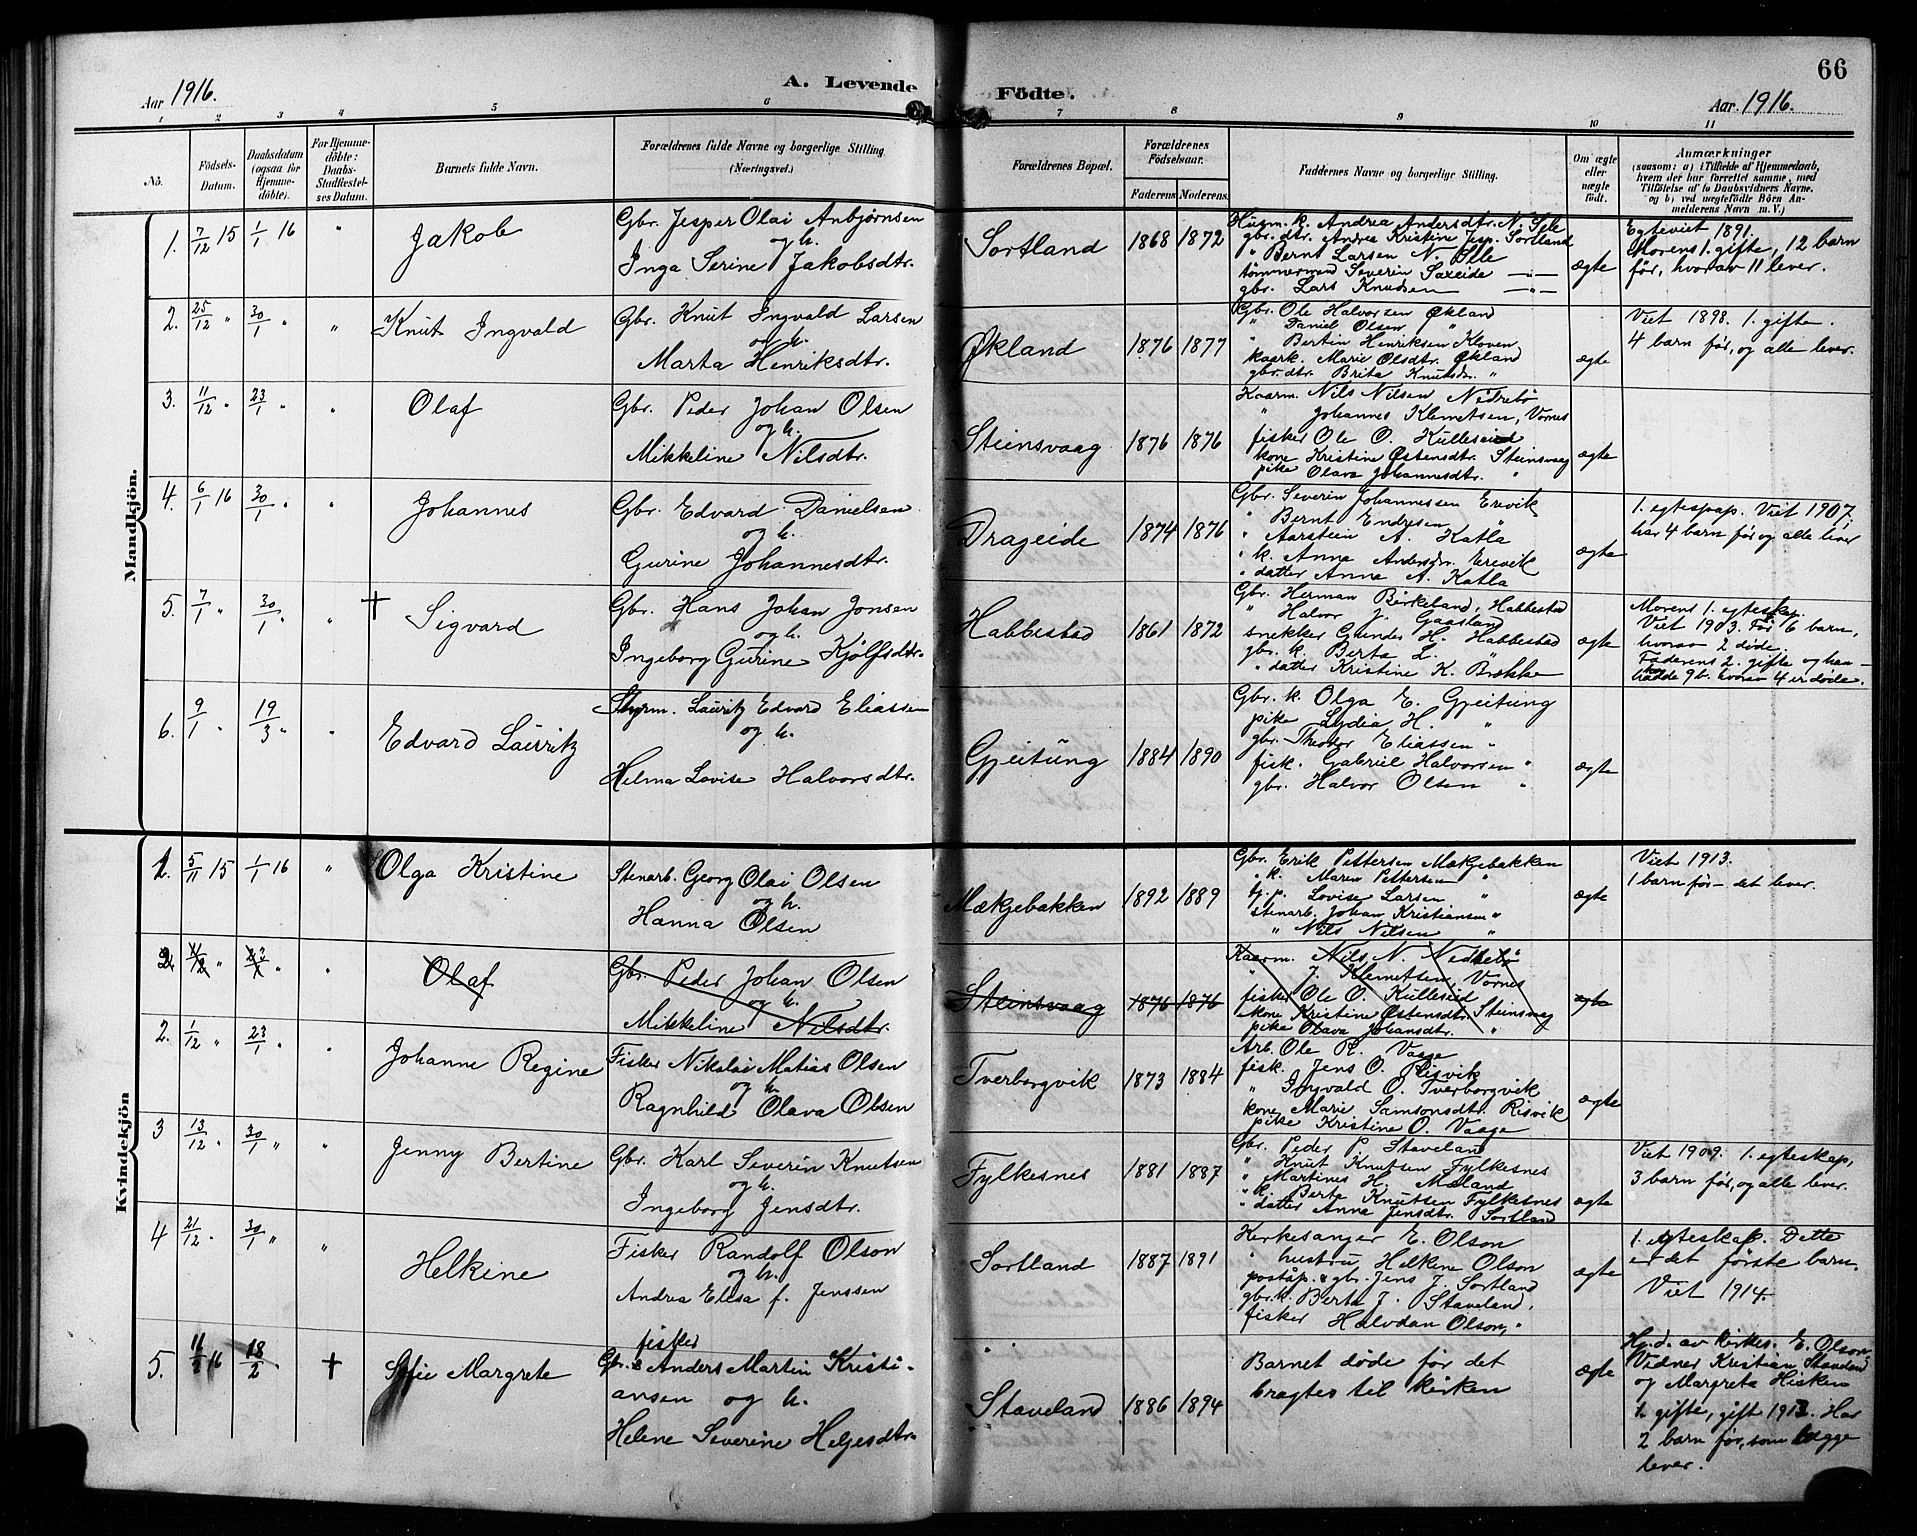 66
Aar 1916.
A. Levende
Födte.
Aar 1916.
1 2 3 4 5 6 7 8 9 10 11
No.
Födsels-
Datum.
Daabsdatum
(ogsaa for
Hjemme-
döbte).
For Hjemme-
döbte:
Daabs-
Stadfæstel-
ses Datum.
Barnets fulde Navn.
Forældrenes fulde Navne og borgerlige Stilling
(Næringsvei.)
Forældrenes Bopæl.
Forældrenes
Födselsaar.
Faderens Moderens
Faddernes Navne og borgerlige Stilling.
Om ægte
eller
uægte
födt.
Anmærkninger
(saasom: a) i Tilfælde af Hjemmedaab,
hvem der har forrettet samme, med
Tilföielse af to Daabsvidners Navne.
og b) ved uægtefödte Börn An-
melderens Navn m. V.)
Mandkjön.
1. 7/12 15 1/1 16 " Jakob
Gbr. Jesper Olai Anbjørnsen
og h.
Inga Serine Jakobsdtr.
Sortland 1868 1872
Husm. k. Andrea Andersdtr. N.
gbr. dtr. Andrea Kristine Jesp. Sortland
" Bernt Larsen N.
tømmermand Severin Saxeide —"—
gbr. Lars Knudsen —"—
ægte
Egteviet 1891.
Morens 1. gifte, 12 barn
før, hvorav 11 lever.
2. 25/12 " 30/1 " " Knut Ingvald
Gbr. Knut Ingvald Larsen
og h.
Marta Henriksdtr.
Økland 1876 1877
Gbr. Ole Halvorsen Økland
" Daniel Olsen "
" Bertin Henriksen Kloven
kaark. Marie Olsdtr. Økland
gbr. dtr. Brita Knutsdr. "
ægte
Viet 1898. 1. gifte.
4 barn før, og alle lever.
3. 11/12 " 23/1 " " Olaf
Gbr. Peder Johan Olsen
og h.
Mikkeline Nilsdtr.
Steinsvaag 1876 1876
Kaarm. Nils Nilsen Nedrebø
" Johannes Klemetsen, Vornes
fisker Ole O. Kulleseid
kone Kristine Østensdtr. Steinsvaag
pike Olava Johannesdtr. "
ægte
4. 6/1 16 30/1 " " Johannes
Gbr. Edvard Danielsen
og h.
Gurine Johannesdtr.
Drageide 1874 1876
Gbr. Severin Johannessen Erevik
" Bernt Endresen "
" Aarstein A. Katla
" k. Anna Andersdr. Erevik
" datter Anna A. Katla
ægte
1. egteskap. Viet 1907,
har 4 barn før og alle lever
5. 7/1 " 30/1 " " † Sigvard
Gbr. Hans Johan Jonsen
og h.
Ingeborg Gurine Kjølfsdtr.
Habbestad 1861 1872
Gbr. Herman Birkeland, Habbestad
" Halvor J. Gaasland
snekker Gunder H. Habbestad
gbr. k. Berta L. "
" datter Kristine K. Brekke
ægte
Morens 1. egteskap.
Viet 1903. Før 6 barn,
hvorav 2 døde.
Faderens 2. gifte og han
hadde 9 b. hvorav 4 er døde.
6. 9/1 " 19/3 " " Edvard Lauritz
Styrm. Lauritz Edvard Eliassen
og h.
Helma Lovise Halvorsdtr.
Gjeitung 1884 1890
Gbr. k. Olga E. Gjeitung
pike Lydia H. "
gbr. Theodor Eliassen "
fisk. Gabriel Halvorsen "
gbr. Halvor Olsen "
ægte
Kvindekjön
1. 5/11 15 1/1 16 " Olga Kristine
Stenarb. Georg Olai Olsen
og h.
Hanna Olsen
Mækjebakken 1892 1889
Gbr. Erik Pettersen Mækjebakken
" k. Maren Pettersen "
tj. p. Lovise Larsen "
stenarb. Johan Kristiansen "
" Nils Nilsen "
ægte
Viet 1913.
1 barn før – det lever.
2. 11/12 " 23/1 " " Olaf
Gbr. Peder Johan Olsen
og h.
Mikkeline Nilsdtr.
Steinsvaag 1876 1876
Kaarm. Nils N. Nedrebø
" J. Klemetsen, Vornes
fisker Ole O. Kulleseid
kone Kristine Østensdtr. Steinsvaag
pike Olava Johansdtr. "
ægte
2. 1/12 " 23/1 " " Johanne Regine
Fisker Nikolai Matias Olsen
og h.
Ragnhild Olava Olsen
Tverborgvik 1873 1884
Arb. Ole R. Vaage
fisk. Jens O. Risvik
" Ingvald O. Tverborgvik
kone Marie Samsonsdtr. Risvik
pike Kristine O. Vaage
ægte
3 13/12 " 30/1 " " Jenny Bertine
Gbr. Karl Severin Knutsen
og h.
Ingeborg Jensdtr.
Fylkesnes 1881 1887
Gbr. Peder P. Staveland
" Knut Knutsen Fylkesnes
" Martines H. Mæland
" k. Berta Knutsen Fylkesnes
" datter Anna Jensdtr. Sortland
ægte
Viet 1909. 1. egteskap,
3 barn før, og alle lever.
4 21/12 " 30/1 " " Helkine
Fisker Randolf Olson
og h.
Andrea Elisa f. Jenssen
Sortland 1887 1891
Kirkesanger E. Olson
" hustru Helkine Olson
poståp. & gbr. Jens J. Sortland
gbr. k. Berta J. Staveland,
fisker Halvdan Olson, "
ægte
1. egteskap. Dette
er det første barn.
Viet 1914.
5. 16 18/2 " † Sofie Margrete
fisker
Gbr. & Anders Martin Kristi-
ansen og h.
Helene Severine Helgesdtr.
Staveland 1886 1894
Barnet døde før det
bragtes til kirken
ægte
Hj. d. av kirkes. E. Olson
Vidner Kristian Staveland
og Margreta Hisken
1. gifte, gift 1913. Har
2 barn før, som begge
lever.